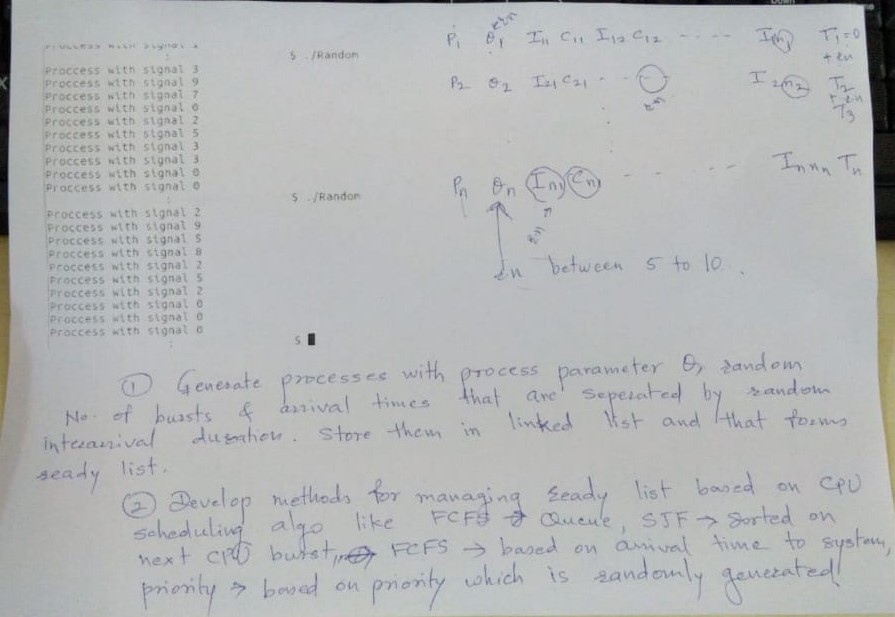 $ ./Random
Proccess with signal 3
Proccess with signal 9
Proccess with signal 7
Proccess with signal 0
Proccess with signal 2
Proccess with signal 5
Proccess with signal 3
Proccess with signal 3
Proccess with signal 0
Proccess with signal 0
$ ./Random
Proccess with signal 2
Proccess with signal 9
Proccess with signal 5
Proccess with signal 8
Proccess with signal 2
Proccess with signal 5
Proccess with signal 2
Proccess with signal 0
Proccess with signal 0
Proccess with signal 0
$
P1 θ1 I11 C11 I12 C12 ---- T1=0
P2 θ2 I21 C21 I2n2 T2
T3
Pn θn In1 Cn1 Innn Tn
between 5 to 10.
① Generate processes with process parameter θ, random
No. of bursts & arrival times that are seperated by random
interarrival duration. Store them in linked list and that forms
ready list.
② Develop methods for managing ready list based on CPU
scheduling algo like FCFS → Queue, SJF → Sorted on
next CPU burst, FCFS → based on arrival time to system,
priority → based on priority which is randomly generated!